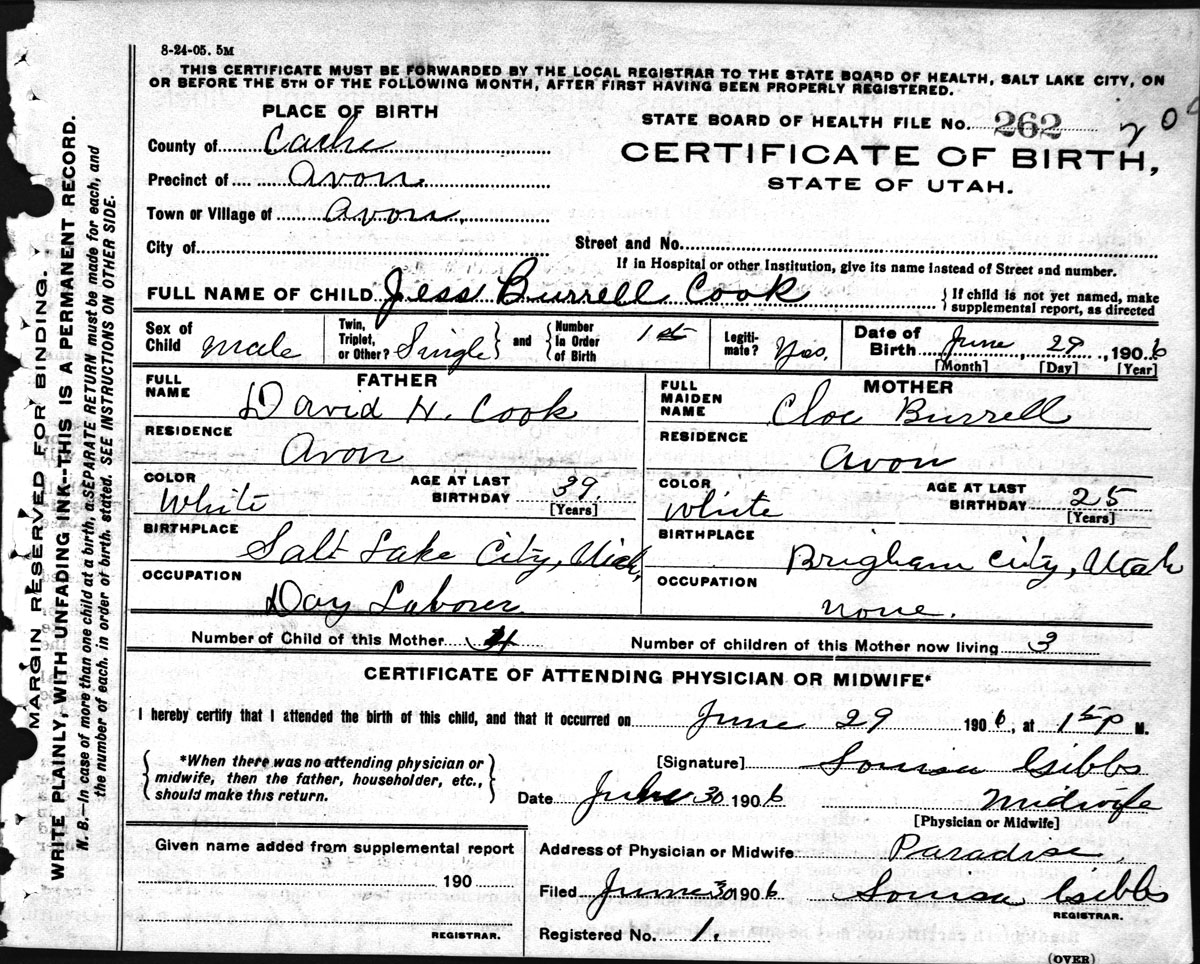 8-24-05. 5M
THIS CERTIFICATE MUST BE FORWARDED BY THE LOCAL REGISTRAR TO THE STATE BOARD OF HEALTH, SALT LAKE CITY, ON
OR BEFORE THE 5TH OF THE FOLLOWING MONTH, AFTER FIRST HAVING BEEN PROPERLY REGISTERED.
PLACE OF BIRTH
STATE BOARD OF HEALTH FILE No. 262
County of Cache
CERTIFICATE OF BIRTH,
Precinct of Avon
STATE OF UTAH.
Town or Village of Avon
City of
Street and No.
If in Hospital or other Institution, give its name instead of Street and number.
FULL NAME OF CHILD Jess Burrell Cook
{If child is not yet named, make
supplemental report, as directed
Sex of Child Male
Twin, Triplet, or Other? Single
and
Number in Order of Birth 1st
Legitimate? Yes.
Date of Birth June, 29, 1906
[Month] [Day] [Year]
FATHER
FULL NAME
David H. Cook
RESIDENCE
Avon
COLOR
White
AGE AT LAST BIRTHDAY 39
[Years]
BIRTHPLACE
Salt Lake City, Utah,
OCCUPATION
Day Laborer
MOTHER
FULL MAIDEN NAME
Cloe Burrell
RESIDENCE
Avon
COLOR
White
AGE AT LAST BIRTHDAY 25
[Years]
BIRTHPLACE
Brigham City, Utah
OCCUPATION
None.
Number of Child of this Mother 4
Number of children of this Mother now living 3
CERTIFICATE OF ATTENDING PHYSICIAN OR MIDWIFE*
I hereby certify that I attended the birth of this child, and that it occurred on June 29 1906, at 1 15 P M.
{*When there was no attending physician or
midwife, then the father, householder, etc.,
should make this return.}
[Signature] Louisa Gibbs
Date June 30 1906
Midwife
[Physician or Midwife]
Given name added from supplemental report
190
REGISTRAR.
Address of Physician or Midwife Paradise.
Filed June 30 1906 Louisa Gibbs
REGISTRAR.
Registered No. 1.
(OVER)
MARGIN RESERVED FOR BINDING.
WRITE PLAINLY, WITH UNFADING INK--THIS IS A PERMANENT RECORD.
N. B.--In case of more than one child at a birth, a SEPARATE RETURN must be made for each, and
the number of each, in order of birth, stated. SEE INSTRUCTIONS ON OTHER SIDE.